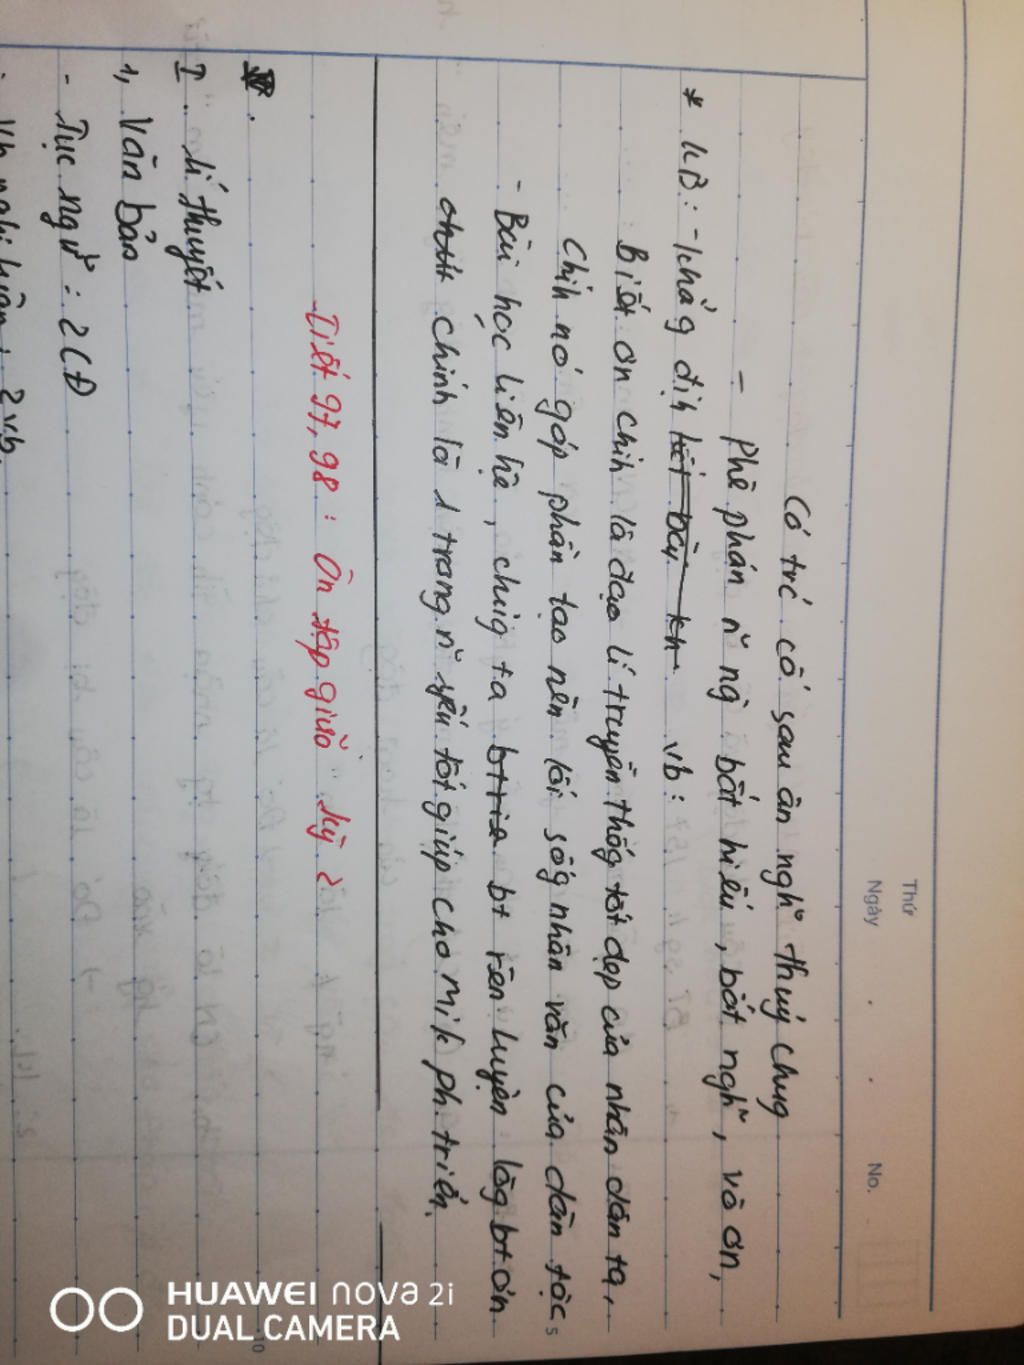 Thứ
Ngày . . No.
Có trc có sau ân nghĩ thuỷ chug
- Phê phán ~ ng bất hiếu, bất nghĩ, vô ơn,
* KB: - Khẳg địh vb:
Biết ơn chih là đạo lí truyền thốg tốt đẹp của nhân dân ta,
Chih nó góp phần tạo nên lối sốg nhân văn của dân tộc
- Bài học liên hệ, chúg ta bt rèn luyện lòg bt ơn
chính là 1 trong ~ yếu tốt giúp cho mik ph. triển.
Tiết 97, 98: Ôn tập giữa kỳ 2
I. Lí thuyết
1, Văn bản
- Tục ngữ: 2 CĐ
- Vb nghị luận: 2 vb.
5
10
HUAWEI nova 2i
DUAL CAMERA